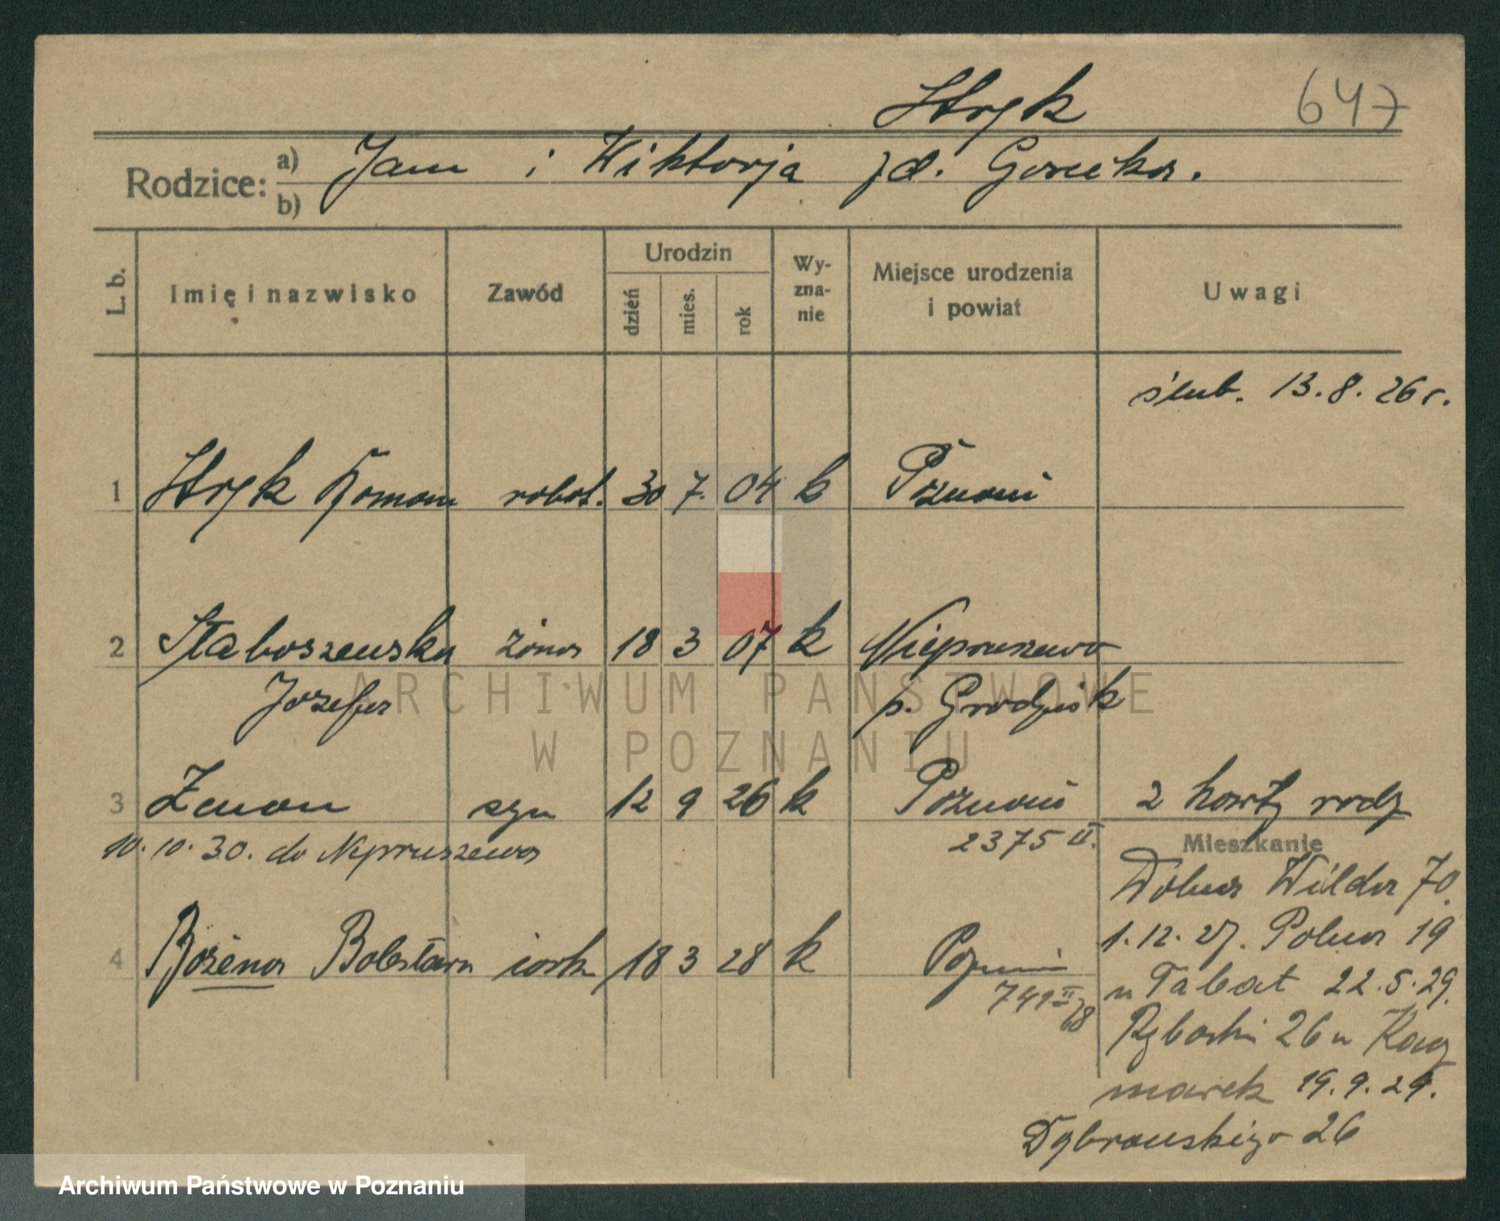 Stryk 647
Rodzice: a) b) Jan i Wiktorja zd. Górecka.
L. b. Imię i nazwisko Zawód Urodzin dzień mies. rok Wyznanie Miejsce urodzenia i powiat Uwagi
ślub. 13.8.26 r.
1 Stryk Roman robot. 30 7. 04 k Poznań
2 Staboszewska żona 18 3 07 k Niepruszewo
Józefa p. Grodzisk
3 Zenon syn 12 9 26 k Poznań 2 karty rodz
10.10.30. do Niepruszewa 2375 II.
Mieszkanie
Dolna Wilda 70.
1.12.27. Polna 19
4 Bożena Bolesława córk 18 3 28 k Poznań
u Tabat 22.5.29.
741 II/28
Rybaki 26 u Kacz
marek 19.9.29.
Dąbrowskiego 26
ARCHIWUM PAŃSTWOWE
W POZNANIU
Archiwum Państwowe w Poznaniu